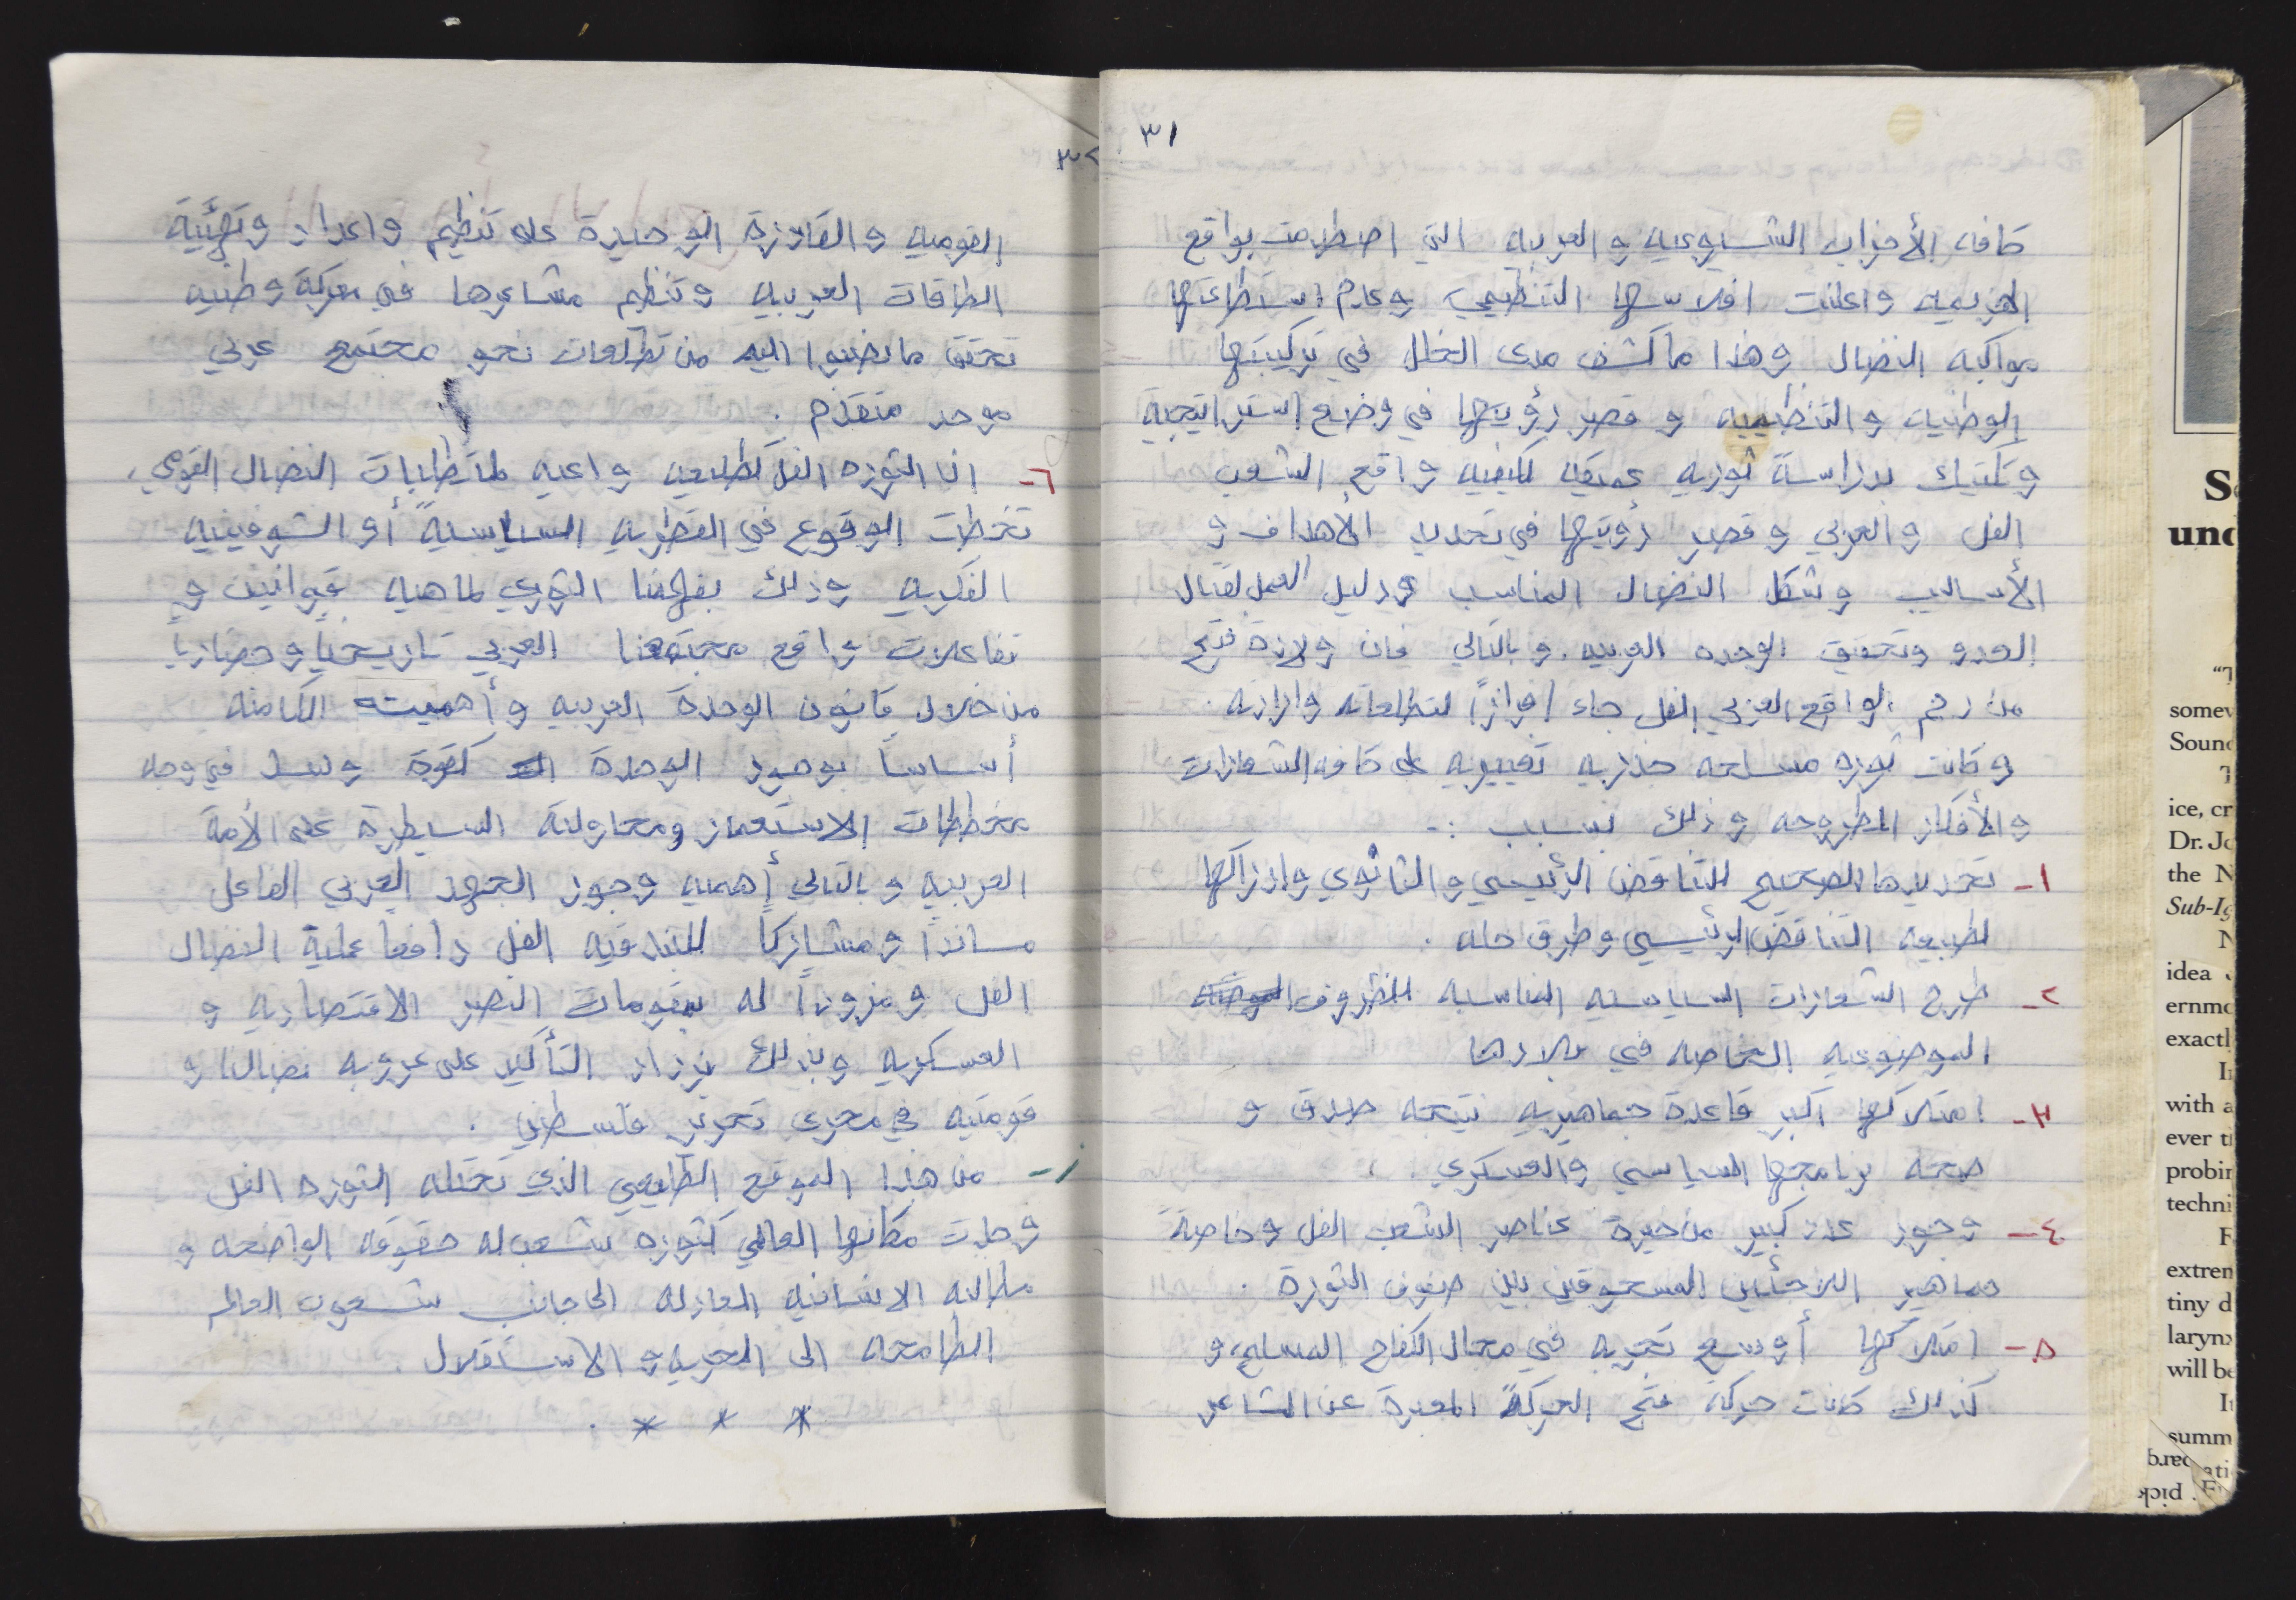 ٣١
كافه الأحزاب الشيوعيه والعربيه التي اصطدمت بواقع
الهزيمه واعلنت افلاسها التنظيمي وعدم استطاعتها
مواكبه النضال وهذا ما كشف مدى الخلل في تركيبتها
الوطنيه والتنظيميه و قصر رؤيتها في وضع استراتيجية
وتكتيك بدراسة ثوريه عميقه لكيفيه واقع الشعب
الفل والعربي وقصر رؤيتها في تحديد الأهداف و
الأساليب وشكل النضال المناسب ودليل العمل لقتال
العدو وتحقيق الوحده العربيه. وبالتالي فان ولادة فتح
من رحم الواقع العربي الفل جاء افرازاً لتطلعاته وارادته.
وكانت ثوره مسلحه جذريه تغييريه على كافه الشعارات
والأفكار المطروحه وذلك بسبب :-
١- تحديدها الصحيح للتناقض الرئيسي والثانوي وادراكها
لطبيعه التناقض الرئيسي وطرق حله .
٢- طرح الشعارات السياسيه المناسبه للظروف
الموضوعيه الخاصه في بلادها
٣- امتلاكها أكبر قاعدة جماهيريه نتيجه صدق و
صحه برنامجها السياسي والعسكري .
٤- وجود عدد كبير من خيرة عناصر الشعب الفل وخاصة
جماهير اللاجئين المسحوقين بين صفوف الثورة .
٥- امتلاكها أوسع تجربه في مجال الكفاح المسلح، و
كذلك كانت حركة فتح الحركة المعبرة عن المشاعر
٣٢
القوميه والقادرة الوحيدة على تنظيم واعداد وتهيئية
الطاقات العربيه وتنظم مشاعرها في معركة وطنيه
تحقق ما تصبوا اليه من تطلعات نحو مجتمع عربي
موحد متقدم .
٦- ان الثوره الفل كطليعه واعيه لمتطلبات النضال القومي،
تخطت الوقوع في القطريه السياسيةً أو الشوفينيه
الفكريه وذلك بفهمنا الثوري لماهيه قوانين و
تفاعلات واقع مجتمعنا العربي تاريخياً وحضارياً
من خلال قانون الوحدة العربيه وأهميته الكامنه
أساساً بوجود الوحدة كقوة وسد في وجه
مخططات الاستعمار ومحاولتة السيطرة على الأمة
العربيه وبالتالي أهميه وجود الجهد العربي الفاعل
مسانداً ومشاركاً للبندقيه الفل دافعاً عملية النضال
الفل ومزوداً له بمقومات النصر الاقتصاديه و
العسكريه وبذلك يزداد التأكيد على عروبه نضالنا و
قوميته في مجرى تحرير فلسطين .
ز- من هذا الموقع الطليعي الذي تحتله الثوره الفل
وجدت مكانها العالمي كثوره شعب له حقوقه الواضحه و
مطالبه الانسانيه العادله الى جانب شعوب العالم
الطامحه الى الحريه والاستقلال .
* * * .
S
und
"T
somew
Soun
T
ice, cr
Dr. Jo
the N
Sub-Ig
N
idea
ernme
exactl
I
with a
ever t
probin
techni
F
extrem
tiny d
laryn
will be
I
summ